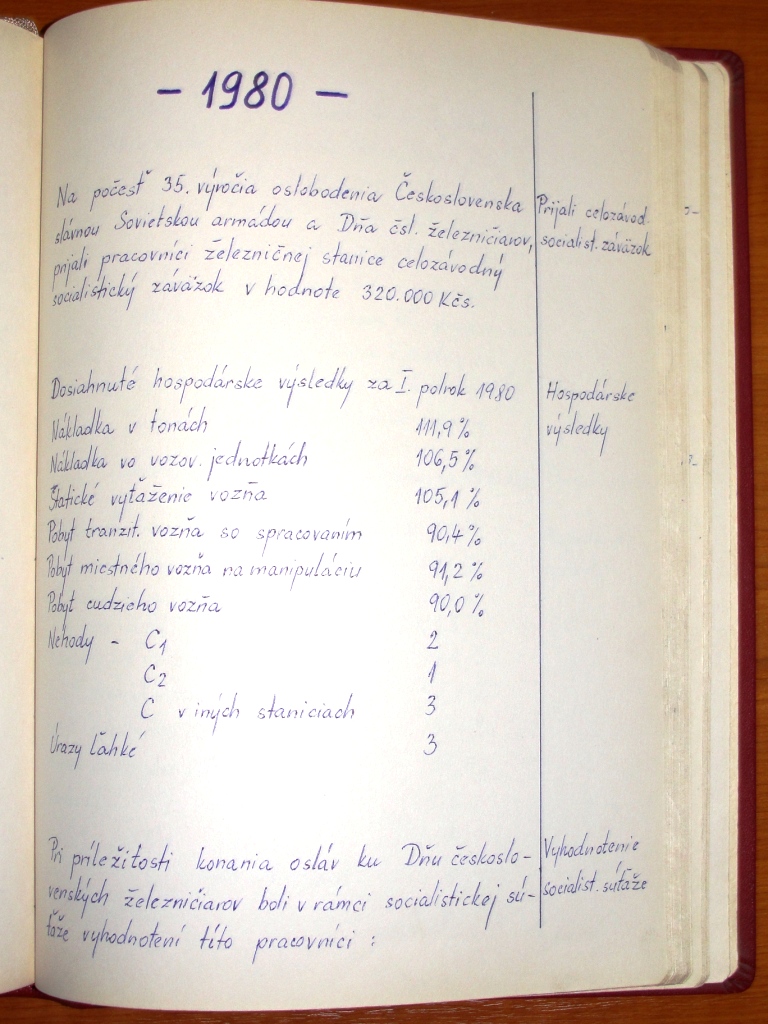 - 1980 -
Na počesť 35. výročia oslobodenia Československa
slávnou Sovietskou armádou a Dňa čsl. železničiarov,
prijali pracovníci železničnej stanice celozávodný
socialistický záväzok v hodnote 320.000 Kčs.
Prijali celozávod.
socialist. záväzok
Dosiahnuté hospodárske výsledky za I. polrok 1980
Hospodárske
výsledky
Nákladka v tonách 111,9 %
Nákladka vo vozov. jednotkách 106,5 %
Štatické vyťaženie vozňa 105,1 %
Pobyt tranzit. vozňa so spracovaním 90,4 %
Pobyt miestného vozňa na manipuláciu 91,2 %
Pobyt cudzieho vozňa 90,0 %
Nehody - C1 2
C2 1
C v iných staniciach 3
Úrazy ľahké 3
Pri príležitosti konania osláv ku Dňu českoslo-
venských železničiarov boli v rámci socialistickej sú-
ťaže vyhodnotení títo pracovníci :
Vyhodnotenie
socialist. súťaže